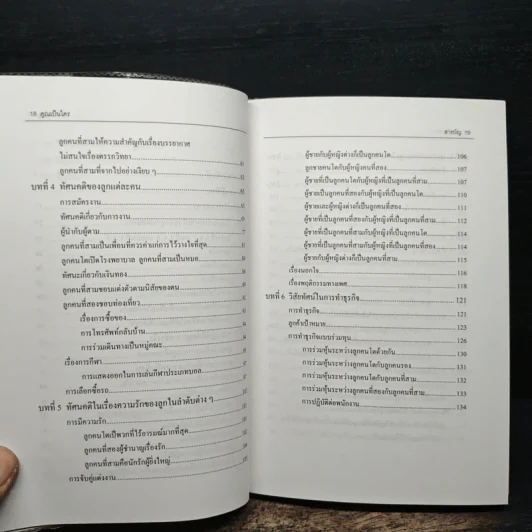 18 คุณเป็นใคร
ลูกคนที่สามให้ความสำคัญกับเรื่องบรรยากาศ
ไม่สนใจเรื่องตรรกวิทยา
ลูกคนที่สามที่จากไปอย่างเงียบ ๆ
บทที่ 4 ทัศนคติของลูกแต่ละคน
การสมัครงาน
ทัศนคติเกี่ยวกับการงาน
ผู้นำกับผู้ตาม
ลูกคนที่สามเป็นเพื่อนที่ควรค่าแก่การไว้วางใจที่สุด
ลูกคนโตเปิดโรงพยาบาล ลูกคนที่สามเป็นหมอ
ทัศนะเกี่ยวกับเงินทอง
ลูกคนที่สามชอบแต่งตัวตามนิสัยของตน
ลูกคนที่สองชอบท่องเที่ยว
เรื่องการซื้อของ
การโทรศัพท์กลับบ้าน
การร่วมเดินทางเป็นหมู่คณะ
เรื่องการกีฬา
การแสดงออกในการเล่นกีฬาประเภทบอล
การเลือกซื้อรถ
บทที่ 5 ทัศนคติในเรื่องความรักของลูกในลำดับต่าง ๆ
การมีความรัก
ลูกคนโตเป็นพวกที่ไร้อารมณ์มากที่สุด
ลูกคนที่สองผู้ชำนาญเรื่องรัก
ลูกคนที่สามคือนักรักผู้ยิ่งใหญ่
การจับคู่แต่งงาน
สารบัญ 19
ผู้ชายกับผู้หญิงต่างก็เป็นลูกคนโต 106
ลูกชายคนโตกับผู้หญิงคนที่สอง 107
ผู้ชายที่เป็นลูกคนโตกับผู้หญิงที่เป็นลูกคนที่สาม 107
ผู้ชายเป็นลูกคนที่สองกับผู้หญิงที่เป็นลูกคนโต 110
ผู้ชายและผู้หญิงต่างก็เป็นลูกคนที่สอง 111
ผู้ชายที่เป็นลูกคนที่สองกับผู้หญิงที่เป็นลูกคนที่สาม 112
ผู้ชายที่เป็นลูกคนที่สามกับผู้หญิงที่เป็นลูกคนโต 113
ผู้ชายที่เป็นลูกคนที่สามกับผู้หญิงที่เป็นลูกคนที่สอง 114
ผู้ชายกับผู้หญิงต่างก็เป็นลูกคนที่สาม 115
เรื่องนอกใจ 116
เรื่องพฤติกรรมทางเพศ 118
บทที่ 6 วิสัยทัศน์ในการทำธุรกิจ 121
การทำธุรกิจ 121
ลูกค้าเป้าหมาย 123
การทำธุรกิจแบบร่วมทุน 126
การร่วมหุ้นระหว่างลูกคนโตด้วยกัน 130
การร่วมหุ้นระหว่างลูกคนโตกับลูกคนรอง 131
การร่วมหุ้นระหว่างลูกคนโตกับลูกคนที่สาม 132
การร่วมหุ้นระหว่างลูกคนที่สองกับลูกคนที่สาม 133
การปฏิบัติต่อพนักงาน 134